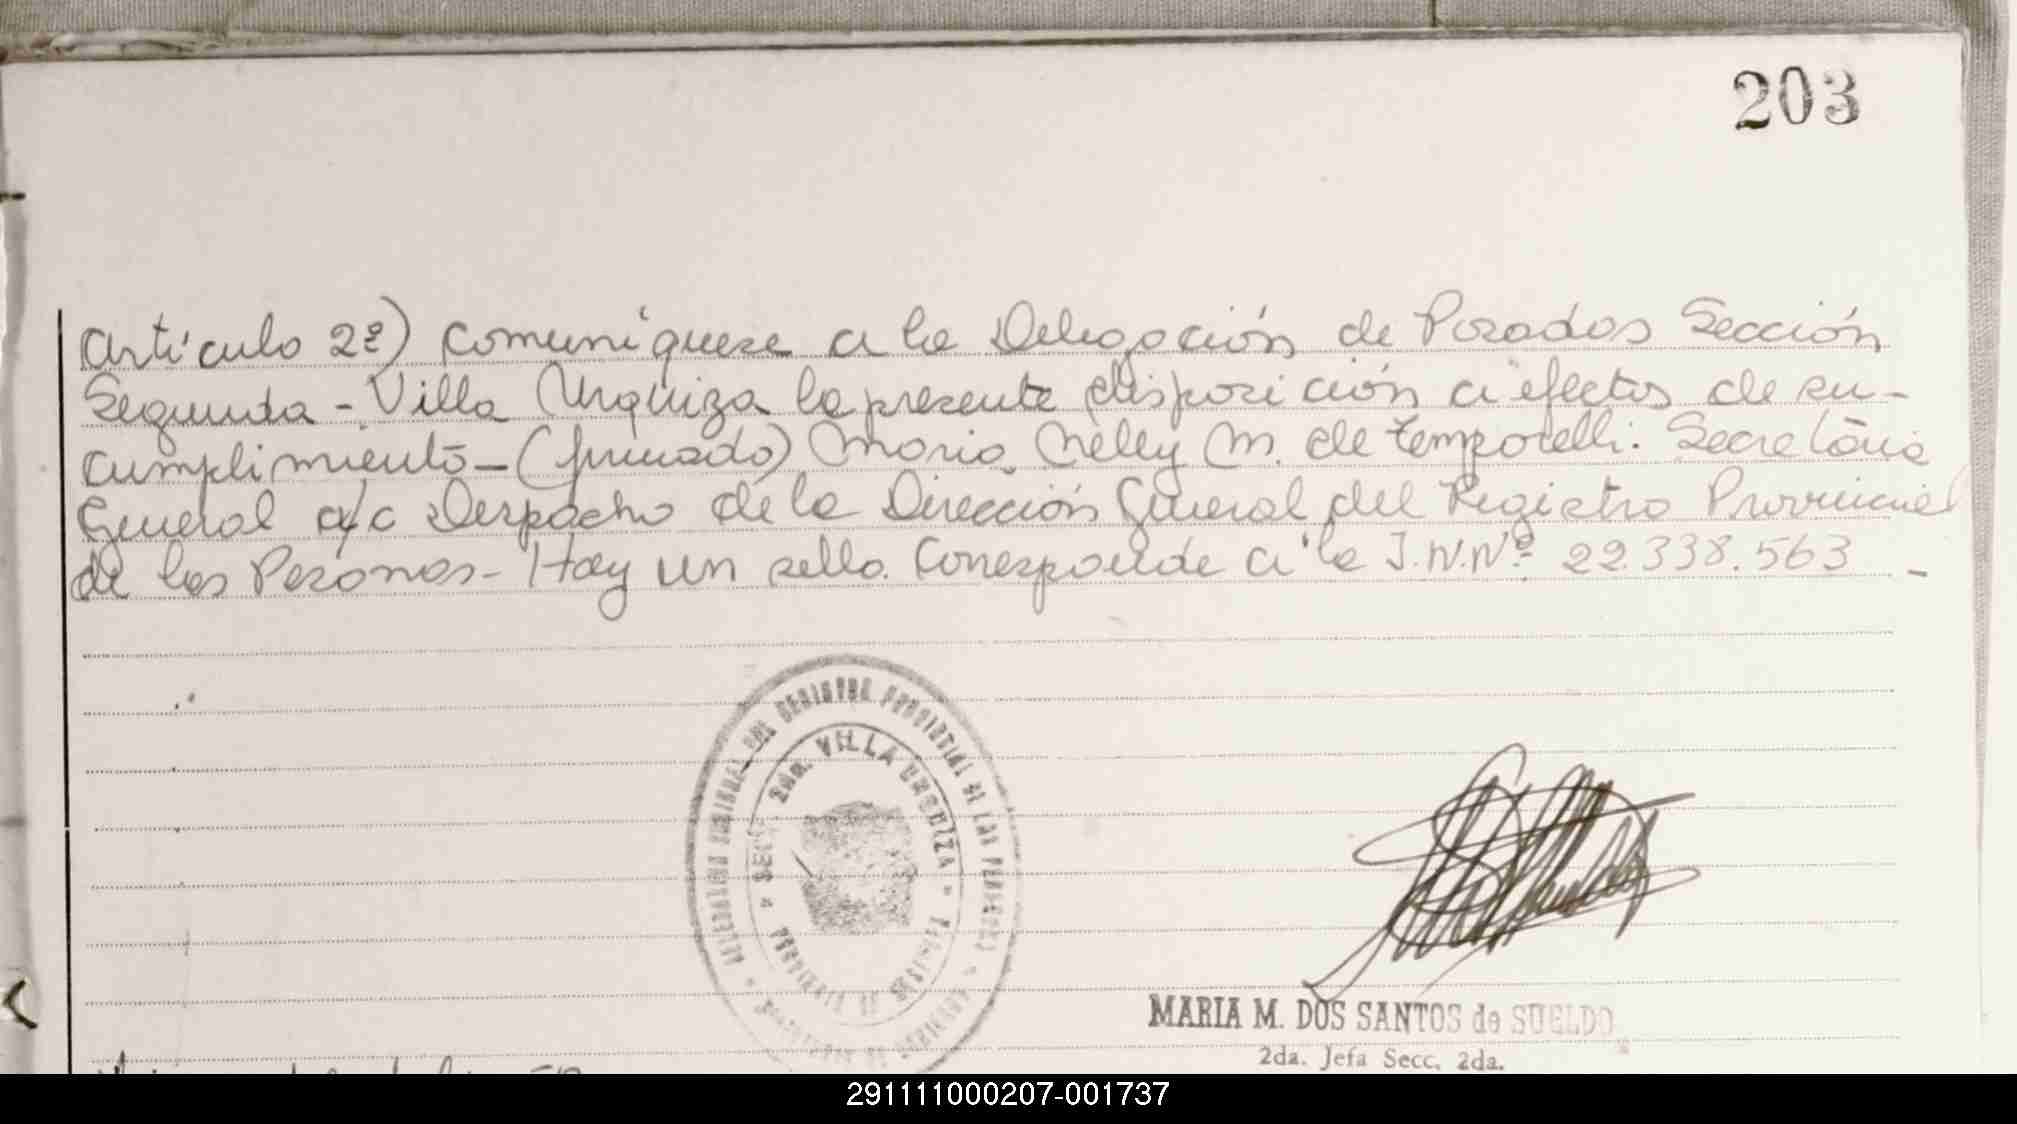 203
Artículo 2º) Comuníquese a la Delegación de Posadas Sección
Segunda - Villa Urquiza la presente disposición a efectos de su-
cumplimiento - (firmado) Maria Nelly M. de Temporelli. Secretaria
General a/c Despacho de la Dirección General del Registro Provincial
de las Personas - Hay un sello. Corresponde a la I.N.Nº 22.338.563 -
REGISTRO PROVINCIAL DE LAS PERSONAS
SECC. 2DA. VILLA URQUIZA
PROVINCIA DE MISIONES
MARIA M. DOS SANTOS de SUELDO
2da. Jefa Secc. 2da.
291111000207-001737